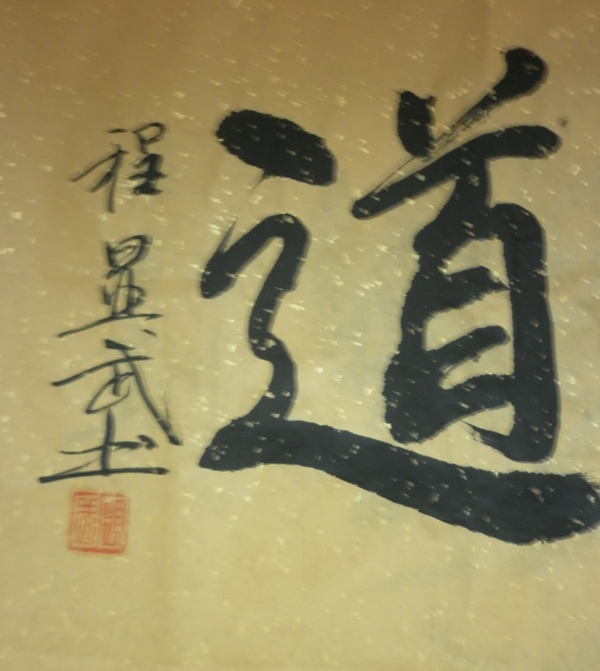 道
程显武